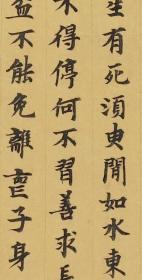 生有死湏臾閒如水東
不得停何不習善求
不能免離子身